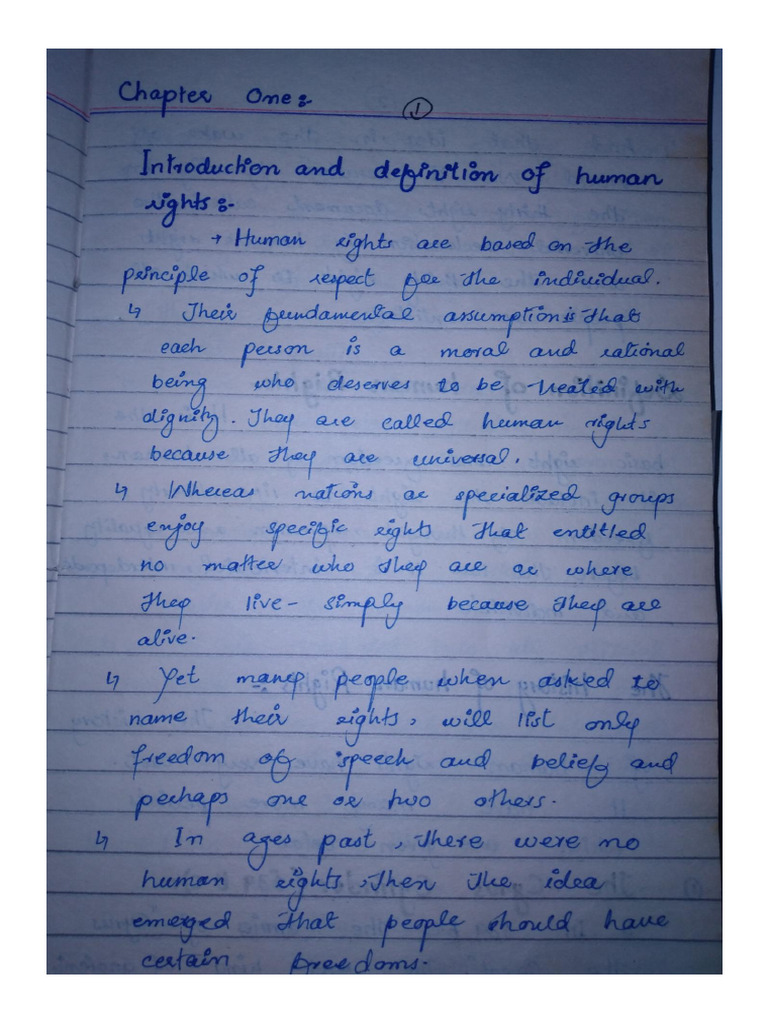 Chapter One:-
1
Introduction and definition of human
rights:-
→ Human rights are based on the
principle of respect for the individual.
↳ Their fundamental assumption is that
each person is a moral and rational
being who deserves to be treated with
dignity. They are called human rights
because they are universal.
↳ Whereas nations or specialized groups
enjoy specific rights that entitled
no matter who they are or where
they live - simply because they are
alive.
↳ Yet many people when asked to
name their rights, will list only
freedom of speech and belief and
perhaps one or two others.
↳ In ages past, there were no
human rights, Then the idea
emerged that people should have
certain freedoms.